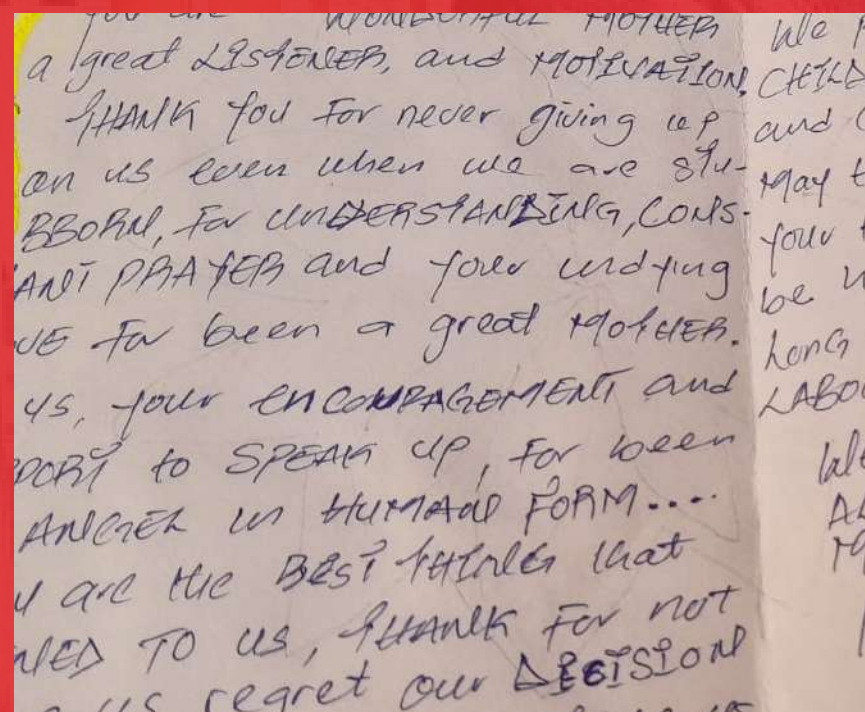 you are WONDERFUL MOTHER
a great LISTENER, and MOTIVATION.
THANK you For never giving up
on us even when we are stu-
BBORN, For UNDERSTANDING, CONS-
ANT PRAYER and your undying
VE For been a great MOTHER.
us, your ENCOURAGEMENT and
PORT to SPEAK UP, For been
ANGEL in HUMAN FORM....
u are the BEST THING that
NED TO US, THANK For not
us regret our DECISION
We
CHILD
and
May t
your
be
Long
LABO
We
AL
M